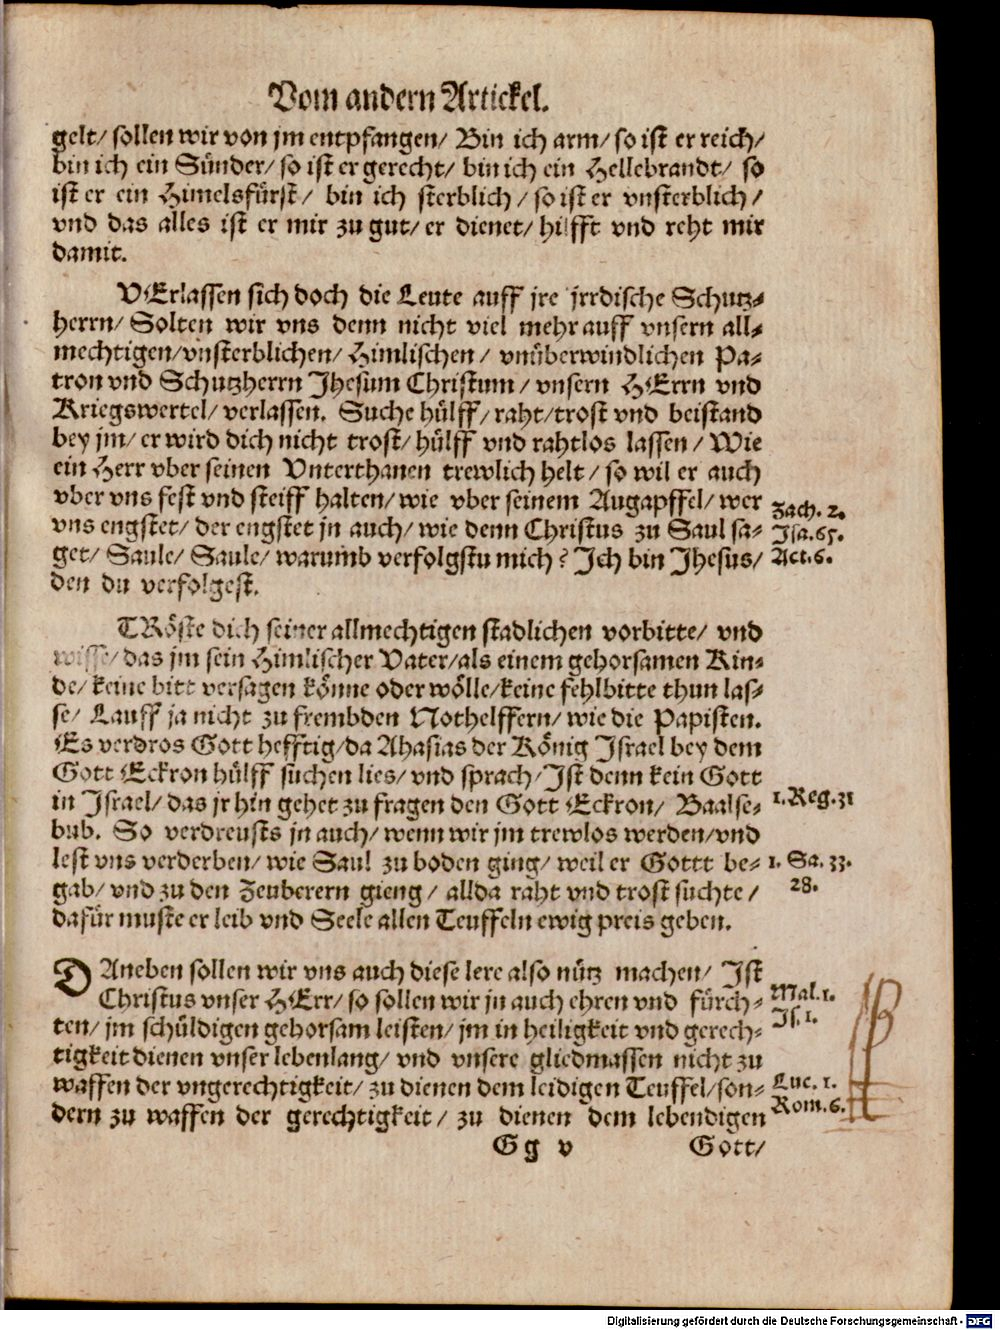 Vom andern Artickel.
gelt/ sollen wir von jm entpfangen/ Bin ich arm/ so ist er reich/
bin ich ein Sünder/ so ist er gerecht/ bin ich ein Hellebrandt/ so
ist er ein Himelsfürst/ bin ich sterblich/ so ist er vnsterblich/
vnd das alles ist er mir zu gut/ er dienet/ hilfft vnd reht mir
damit.
VErlassen sich doch die Leute auff jre jrrdische Schutz-
herrn/ Solten wir vns denn nicht viel mehr auff vnsern all-
mechtigen/vnsterblichen/ Himlischen/ vnüberwindlichen Pa-
tron vnd Schutzherrn Jhesum Christum/ vnsern HErrn vnd
Kriegswertel/ verlassen. Suche hülff/ raht/trost vnd beistand
bey jm/ er wird dich nicht trost/ hülff vnd rahtlos lassen/ Wie
ein Herr vber seinen Vnterthanen trewlich helt/ so wil er auch
vber vns fest vnd steiff halten/ wie vber seinem Augapffel/ wer
vns engstet/ der engstet jn auch/ wie denn Christus zu Saul sa-
get/ Saule/ Saule/ warumb verfolgstu mich? Ich bin Jhesus/
den du verfolgest.
Zach. 2.
Isa. 65.
Act. 6.
TRöste dich seiner allmechtigen stadlichen vorbitte/ vnd
wisse/ das jm sein Himlischer Vater/als einem gehorsamen Kin-
de/ keine bitt versagen könne oder wölle/keine fehlbitte thun las-
se/ Lauff ja nicht zu frembden Nothelffern/ wie die Papisten.
Es verdros Gott hefftig/da Ahasias der König Israel bey dem
Gott Eckron hülff suchen lies/ vnd sprach/ Ist denn kein Gott
in Israel/ das jr hin gehet zu fragen den Gott Eckron/ Baalse-
bub. So verdreusts jn auch/ wenn wir jm trewlos werden/vnd
lest vns verderben/ wie Saul zu boden ging/ weil er Gottt be-
gab/ vnd zu den Zeuberern gieng/ allda raht vnd trost suchte/
dafür muste er leib vnd Seele allen Teuffeln ewig preis geben.
1. Reg. 31
1. Sa. 33.
28.
DAneben sollen wir vns auch diese lere also nütz machen/ Ist
Christus vnser HErr/ so sollen wir jn auch ehren vnd fürch-
ten/ jm schüldigen gehorsam leisten/ jm in heiligkeit vnd gerech-
tigkeit dienen vnser lebenlang/ vnd vnsere gliedmassen nicht zu
waffen der vngerechtigkeit/ zu dienen dem leidigen Teuffel/ son-
dern zu waffen der gerechtigkeit/ zu dienen dem lebendigen
Mal. 1.
Is. 1.
Luc. 1.
Rom. 6.
Gg v
Gott/
Digitalisierung gefördert durch die Deutsche Forschungsgemeinschaft - DFG